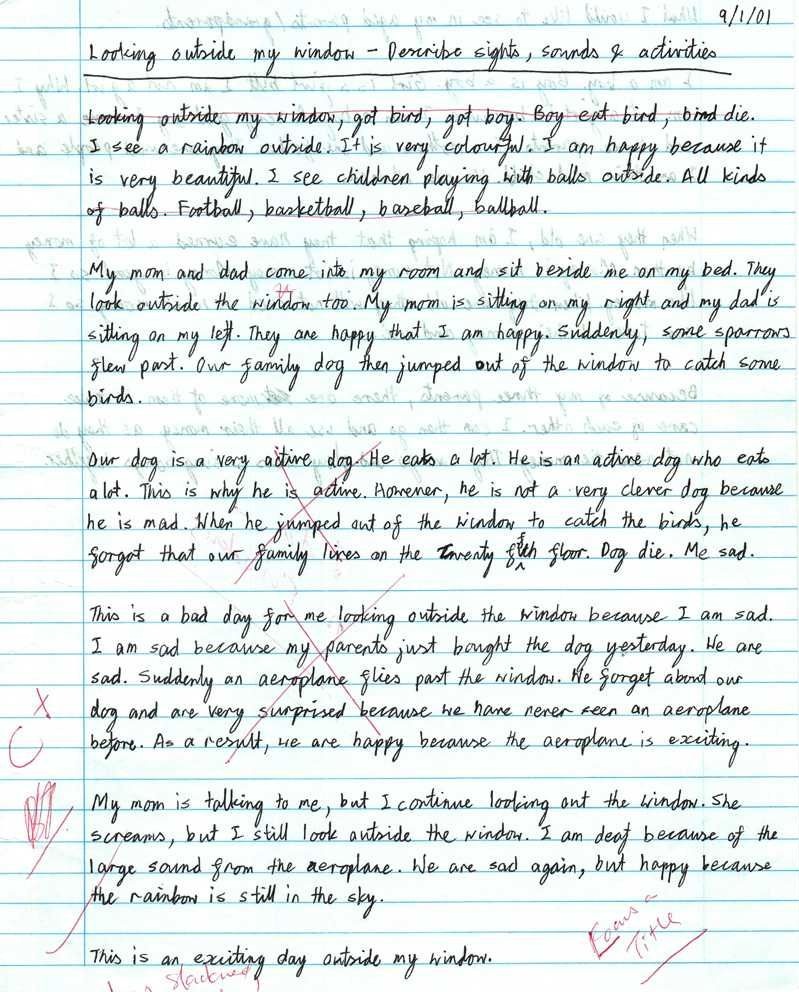 9/1/01
Looking outside my window - Describe sights, sounds & activities
Looking outside my window, got bird, got boy. Boy eat bird, bird die.
I see a rainbow outside. It is very colourful. I am happy because it
is very beautiful. I see children playing with balls outside. All kinds
of balls. Football, basketball, baseball, ballball.
My mom and dad come into my room and sit beside me on my bed. They
look outside the window too. My mom is sitting on my right and my dad is
sitting on my left. They are happy that I am happy. Suddenly, some sparrows
flew past. Our family dog then jumped out of the window to catch some
birds.
Our dog is a very active dog. He eats a lot. He is an active dog who eats
a lot. This is why he is active. However, he is not a very clever dog because
he is mad. When he jumped out of the window to catch the birds, he
forgot that our family lives on the Twenty fifth floor. Dog die. Me sad.
This is a bad day for me looking outside the window because I am sad.
I am sad because my parents just bought the dog yesterday. We are
sad. Suddenly an aeroplane flies past the window. We forget about our
dog and are very surprised because we have never seen an aeroplane
before. As a result, we are happy because the aeroplane is exciting.
My mom is talking to me, but I continue looking out the window. She
screams, but I still look outside the window. I am deaf because of the
large sound from the aeroplane. We are sad again, but happy because
the rainbow is still in the sky.
Focus
Title
This is an exciting day outside my window.